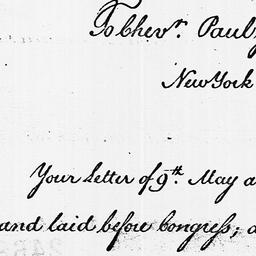 To Chevr. Paul
New York
Your Letter of 9th. May a
and laid before Congress; a